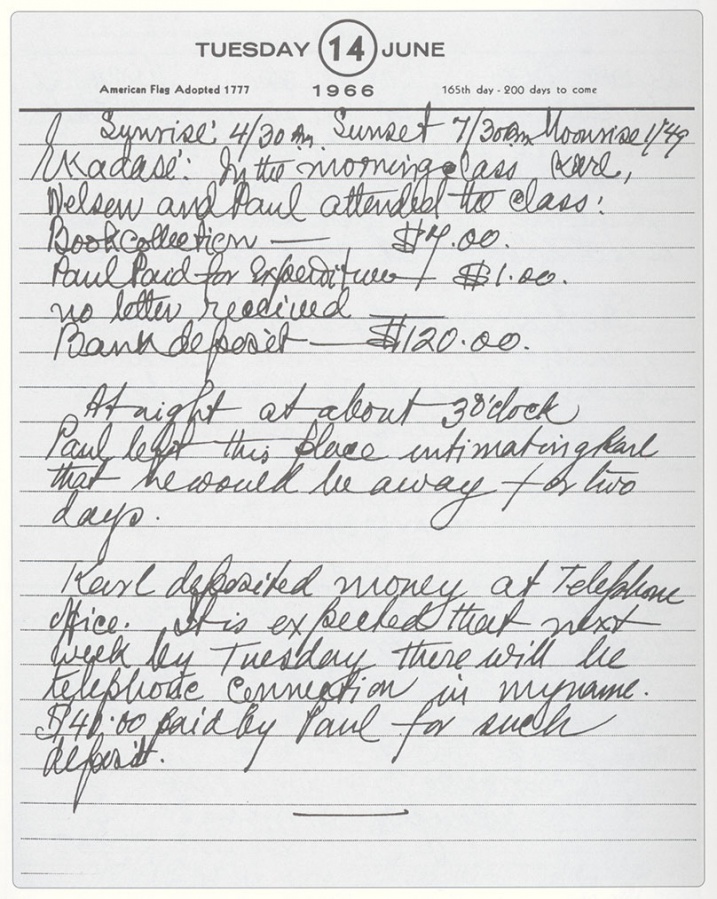 TUESDAY 14 JUNE
American Flag Adopted 1777 1966 165th day - 200 days to come
Sunrise: 4/30 Am Sunset 7/30 Moonrise 1/49
Ekadasi: In the morning class Karl,
Nelson and Paul attended to class:
Book collection — $7.00.
Paul Paid for Expenditure $1.00.
no letter received —
Bank deposit — $120.00.
At night at about 3O'clock
Paul left this place intimating Karl
that he would be away for two
days.
Karl deposited money at Telephone
office. It is expected that next
week by Tuesday there will be
telephone connection in my name.
$40.00 paid by Paul for such
deposit.